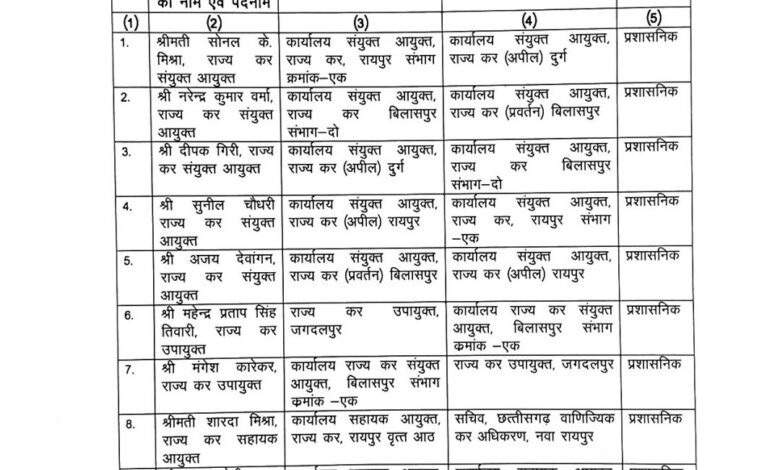 का नाम एवं पदनाम
(1) (2) (3) (4) (5)
1. श्रीमती सोनल के. कार्यालय संयुक्त आयुक्त, कार्यालय संयुक्त आयुक्त, प्रशासनिक
मिश्रा, राज्य कर राज्य कर, रायपुर संभाग राज्य कर (अपील) दुर्ग
संयुक्त आयुक्त क्रमांक–एक
2. श्री नरेन्द्र कुमार वर्मा, कार्यालय संयुक्त आयुक्त, कार्यालय संयुक्त आयुक्त, प्रशासनिक
राज्य कर संयुक्त राज्य कर बिलासपुर राज्य कर (प्रवर्तन) बिलासपुर
आयुक्त संभाग–दो
3. श्री दीपक गिरी, राज्य कार्यालय संयुक्त आयुक्त, कार्यालय संयुक्त आयुक्त, प्रशासनिक
कर संयुक्त आयुक्त राज्य कर (अपील) दुर्ग राज्य कर बिलासपुर
संभाग–दो
4. श्री सुनील चौधरी कार्यालय संयुक्त आयुक्त, कार्यालय संयुक्त आयुक्त, प्रशासनिक
राज्य कर संयुक्त राज्य कर (अपील) रायपुर राज्य कर, रायपुर संभाग
आयुक्त –एक
5. श्री अजय देवांगन, कार्यालय संयुक्त आयुक्त, कार्यालय संयुक्त आयुक्त, प्रशासनिक
राज्य कर संयुक्त राज्य कर (प्रवर्तन) बिलासपुर राज्य कर (अपील) रायपुर
आयुक्त
6. श्री महेन्द्र प्रताप सिंह राज्य कर उपायुक्त, कार्यालय राज्य कर संयुक्त प्रशासनिक
तिवारी, राज्य कर जगदलपुर आयुक्त, बिलासपुर संभाग
उपायुक्त क्रमांक –एक
7. श्री मंगेश कारेकर, कार्यालय राज्य कर संयुक्त राज्य कर उपायुक्त, जगदलपुर प्रशासनिक
राज्य कर उपायुक्त आयुक्त, बिलासपुर संभाग
क्रमांक –एक
8. श्रीमती शारदा मिश्रा, कार्यालय सहायक आयुक्त, सचिव, छत्तीसगढ़ वाणिज्यिक प्रशासनिक
राज्य कर सहायक राज्य कर, रायपुर वृत्त आठ कर अधिकरण, नवा रायपुर
आयुक्त